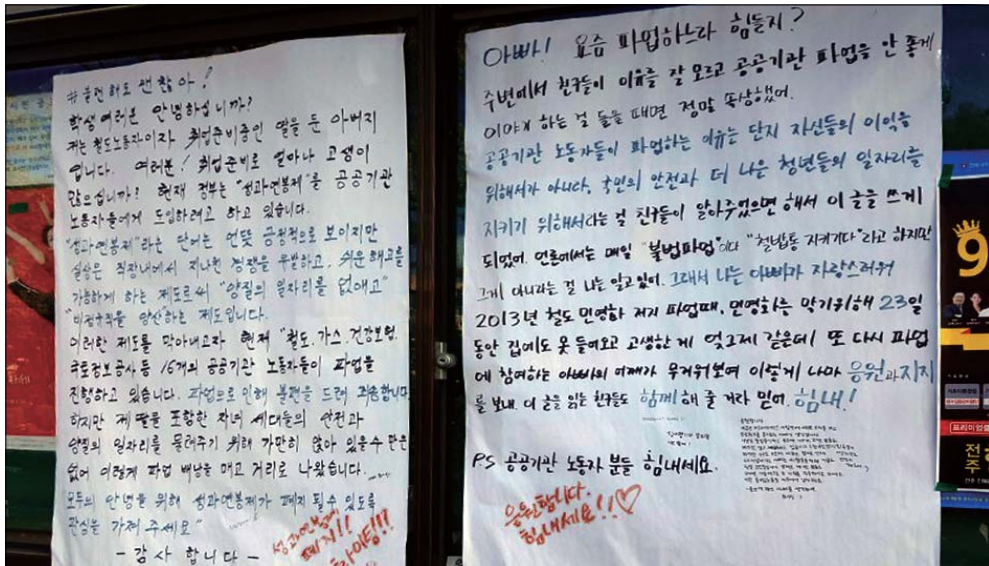 #불편해도 괜찮아!
학생 여러분 안녕하십니까?
저는 철도노동자이자 취업준비중인 딸을 둔 아버지
입니다. 여러분! 취업준비로 얼마나 고생이
많으십니까? 현재 정부는 "성과연봉제"를 공공기관
노동자들에게 도입하려고 하고 있습니다.
"성과연봉제"라는 단어는 언뜻 긍정적으로 보이지만
실상은 직장내에서 지나친 경쟁을 유발하고, 쉬운 해고를
가능하게 하는 제도로써 "양질의 일자리를 없애고"
"비정규직을 양산하는 제도"입니다.
이러한 제도를 막아내고자 현재 "철도. 가스. 건강보험.
국토정보공사 등 16개의 공공기관 노동자들이 파업을
진행하고 있습니다. 파업으로 인해 불편을 드려 죄송합니다.
하지만 제 딸을 포함한 자녀 세대들의 안전과
양질의 일자리를 물려주기 위해 가만히 앉아 있을수 만은
없어 이렇게 파업 배낭을 매고 거리로 나왔습니다.
모두의 안녕을 위해 성과연봉제가 폐지 될수 있도록
관심을 가져 주세요"
- 감사 합니다 -
성과연봉제
폐지!!
화이팅!!!
아빠! 요즘 파업하느라 힘들지?
주변에서 친구들이 이유를 잘 모르고 공공기관 파업을 안 좋게
이야기 하는 걸 들을 때면 정말 속상했어.
공공기관 노동자들이 파업하는 이유는 단지 자신들의 이익을
위해서가 아니라, 국민의 안전과 더 나은 청년들의 일자리를
지키기 위해서라는 걸 친구들이 알아주었으면 해서 이 글을 쓰게
되었어. 언론에서는 매일 "불법파업"이다 "철밥통 지키기다"라고 하지만
그게 아니라는 걸 나는 알고있어. 그래서 나는 아빠가 자랑스러워
2013년 철도 민영화 저지 파업때, 민영화를 막기위해 23일
동안 집에도 못 들어오고 고생한 게 엊그제 같은데 또 다시 파업
에 참여하는 아빠의 어깨가 무거워보여 이렇게 나마 응원과 지지
를 보내. 이 글을 읽는 친구들도 함께 해 줄 거라 믿어. 힘내!
PS 공공기관 노동자 분들 힘내세요.
응원합니다.
힘내세요!!♡
9
프리미엄
전주